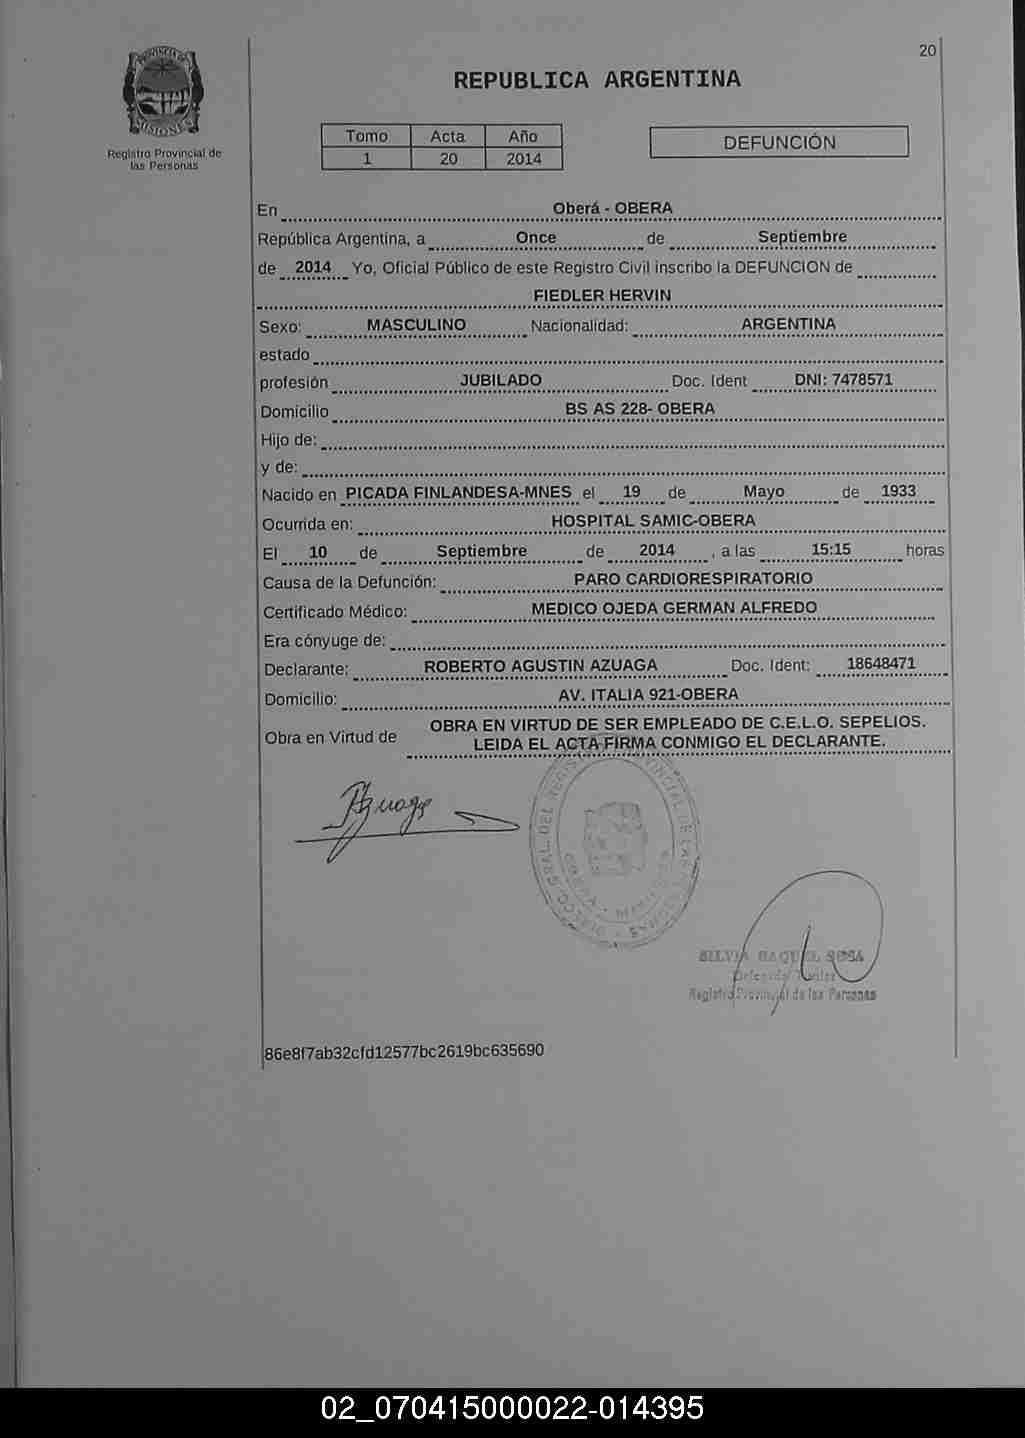 20
PROVINCIA DE
MISIONES
Registro Provincial de
las Personas
REPUBLICA ARGENTINA
Tomo Acta Año
1 20 2014
DEFUNCIÓN
En Oberá - OBERA
República Argentina, a Once de Septiembre
de 2014 Yo, Oficial Público de este Registro Civil inscribo la DEFUNCION de
FIEDLER HERVIN
Sexo: MASCULINO Nacionalidad: ARGENTINA
estado
profesión JUBILADO Doc. Ident DNI: 7478571
Domicilio BS AS 228- OBERA
Hijo de:
y de:
Nacido en PICADA FINLANDESA-MNES el 19 de Mayo de 1933
Ocurrida en: HOSPITAL SAMIC-OBERA
El 10 de Septiembre de 2014 , a las 15:15 horas
Causa de la Defunción: PARO CARDIORESPIRATORIO
Certificado Médico: MEDICO OJEDA GERMAN ALFREDO
Era cónyuge de:
Declarante: ROBERTO AGUSTIN AZUAGA Doc. Ident: 18648471
Domicilio: AV. ITALIA 921-OBERA
Obra en Virtud de OBRA EN VIRTUD DE SER EMPLEADO DE C.E.L.O. SEPELIOS.
LEIDA EL ACTA FIRMA CONMIGO EL DECLARANTE.
Azuaga
DIRECC. GRAL. DEL REGISTRO PROVINCIAL DE LAS PERSONAS
OBERA - MISIONES
SILVIA RAQUEL SOSA
Registro Provincial de las Personas
86e8f7ab32cfd12577bc2619bc635690
02_070415000022-014395